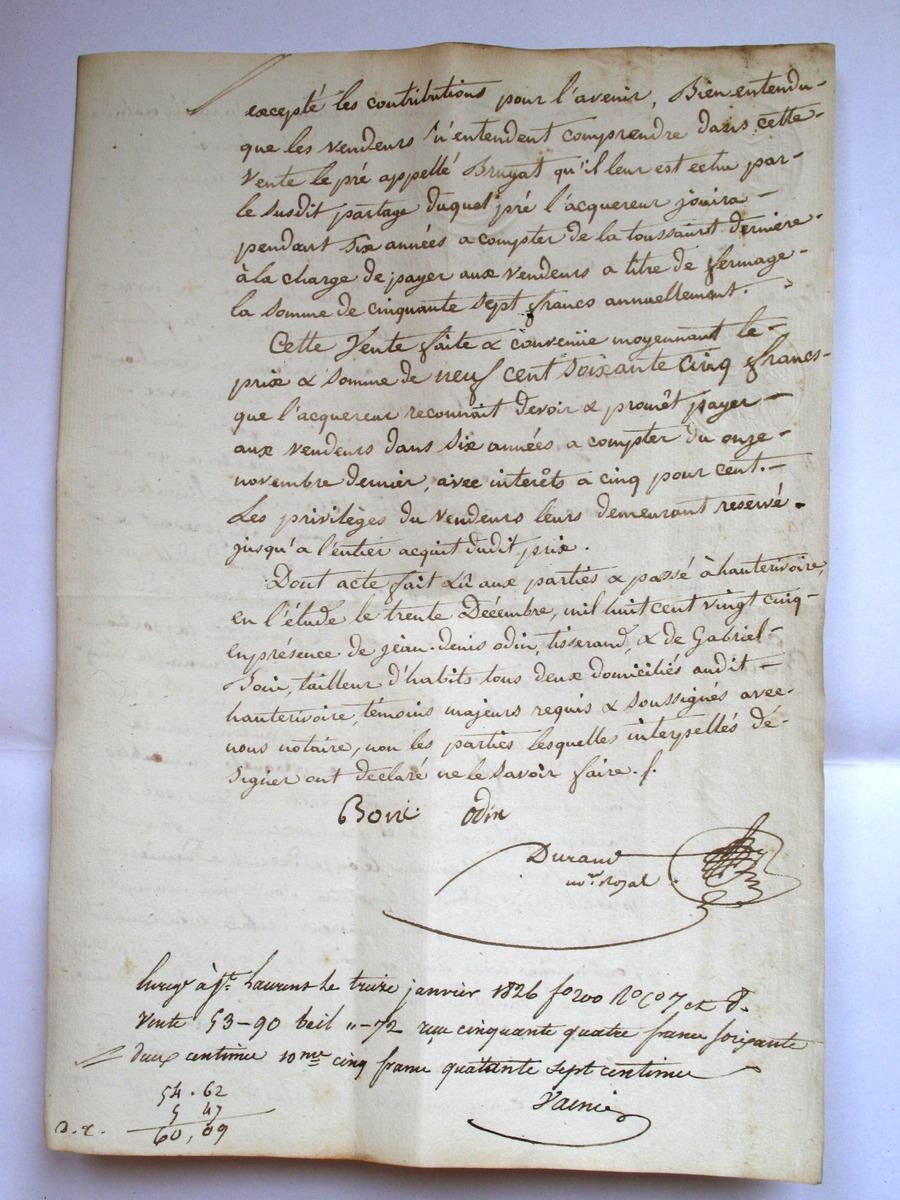 excepté les contributions pour l'avenir, Bien entendu-
que les vendeurs n'entendent comprendre dans cette-
Vente le pré appellé Bruyat qu'il leur est echu par-
le susdit partage duquel pré l'acquereur jouira-
pendant six années a compter de la toussaint derniere-
à la charge de payer aux vendeurs a titre de fermage-
la somme de cinquante sept francs annuellement.
Cette Vente faite & convenüe moyennant le-
prix & somme de neuf cent soixante cinq francs-
que l'acquereur reconnait devoir & promêt payer-
aux vendeurs dans six années a compter du onze-
novembre dernier, avec interêts a cinq pour cent.-
Les privilèges du vendeurs leurs demeurant reservé-
jusqu'a l'entier acquit dudit prix.
Dont acte fait Lû aux parties & passé à hauterivoire,
en l'étude le trente Décembre, mil huit cent vingt cinq-
en présence de jean-Denis odin, tisserand, & de Gabriel-
Boni, tailleur d'habits tous deux domiciliés audit-
hauterivoire, témoins majeurs requis & soussignés avec-
nous notaire, non les parties lesquelles interpellés dé-
signer ont declaré ne le savoir faire. /.
Boni odin
Durand
no.re Royal
Enreg. à St. Laurent le treize janvier 1826 fo 200 Ro Co 7 et 8.
Vente 53-90 bail "-72 reçu cinquante quatre francs soixante
deux centimes 10me cinq francs quarante sept centimes
54.62
5 47
D. c. 60,09